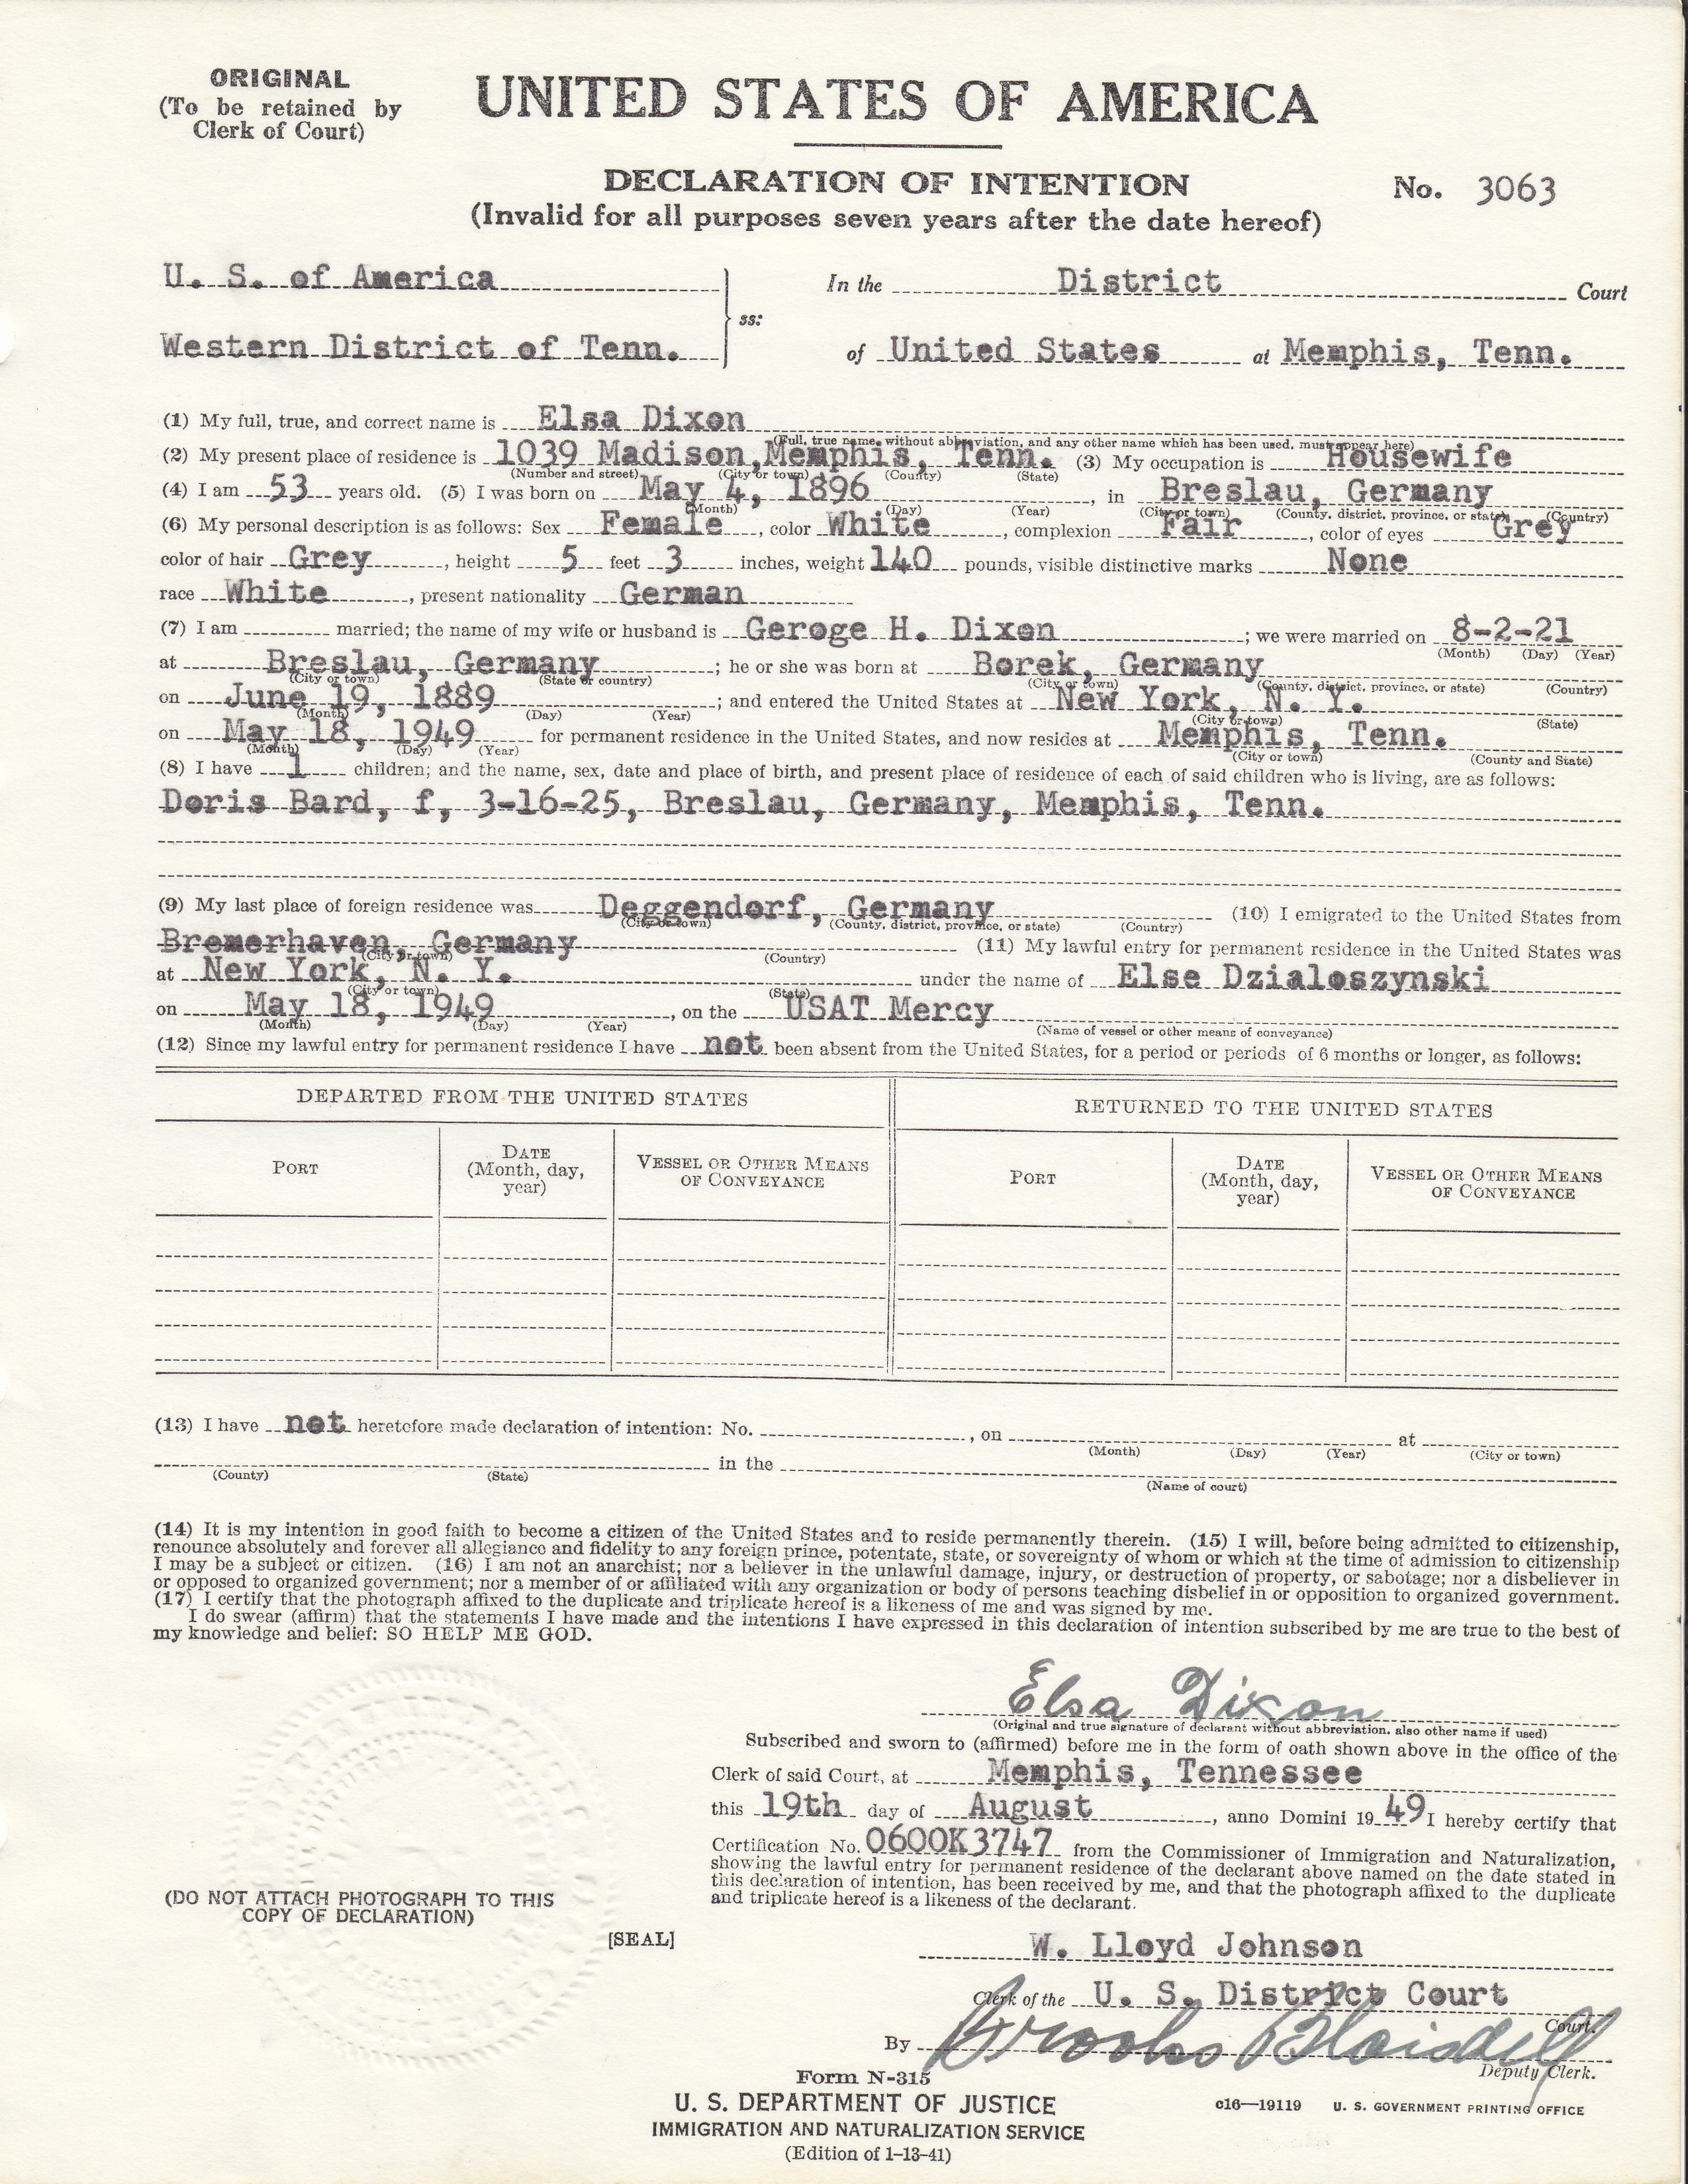 ORIGINAL
(To be retained by
Clerk of Court)
UNITED STATES OF AMERICA
DECLARATION OF INTENTION
(Invalid for all purposes seven years after the date hereof)
No. 3063
U. S. of America
Western District of Tenn.
ss:
In the District Court
of United States at Memphis, Tenn.
(1) My full, true, and correct name is Elsa Dixon
(Full, true name, without abbreviation, and any other name which has been used, must appear here)
(2) My present place of residence is 1039 Madison, Memphis, Tenn. (3) My occupation is Housewife
(Number and street) (City or town) (County) (State)
(4) I am 53 years old. (5) I was born on May 4, 1896, in Breslau, Germany
(Month) (Day) (Year) (City or town) (County, district, province, or state) (Country)
(6) My personal description is as follows: Sex Female, color White, complexion Fair, color of eyes Grey
color of hair Grey, height 5 feet 3 inches, weight 140 pounds, visible distinctive marks None
race White, present nationality German
(7) I am married; the name of my wife or husband is Geroge H. Dixon; we were married on 8-2-21
(Month) (Day) (Year)
at Breslau, Germany; he or she was born at Borek, Germany
(City or town) (State or country) (City or town) (County, district, province, or state) (Country)
on June 19, 1889; and entered the United States at New York, N. Y.
(Month) (Day) (Year) (City or town) (State)
on May 18, 1949 for permanent residence in the United States, and now resides at Memphis, Tenn.
(Month) (Day) (Year) (City or town) (County and State)
(8) I have 1 children; and the name, sex, date and place of birth, and present place of residence of each of said children who is living, are as follows:
Doris Bard, f, 3-16-25, Breslau, Germany, Memphis, Tenn.
(9) My last place of foreign residence was Deggendorf, Germany (10) I emigrated to the United States from
(City or town) (County, district, province, or state) (Country)
Bremerhaven, Germany (11) My lawful entry for permanent residence in the United States was
(City or town) (Country)
at New York, N. Y. under the name of Else Dzialoszynski
(City or town) (State)
on May 18, 1949, on the USAT Mercy
(Month) (Day) (Year) (Name of vessel or other means of conveyance)
(12) Since my lawful entry for permanent residence I have not been absent from the United States, for a period or periods of 6 months or longer, as follows:
DEPARTED FROM THE UNITED STATES RETURNED TO THE UNITED STATES
PORT DATE (Month, day, year) VESSEL OR OTHER MEANS OF CONVEYANCE PORT DATE (Month, day, year) VESSEL OR OTHER MEANS OF CONVEYANCE
(13) I have not heretofore made declaration of intention: No. , on at
(Month) (Day) (Year) (City or town)
in the
(County) (State) (Name of court)
(14) It is my intention in good faith to become a citizen of the United States and to reside permanently therein. (15) I will, before being admitted to citizenship,
renounce absolutely and forever all allegiance and fidelity to any foreign prince, potentate, state, or sovereignty of whom or which at the time of admission to citizenship
I may be a subject or citizen. (16) I am not an anarchist; nor a believer in the unlawful damage, injury, or destruction of property, or sabotage; nor a disbeliever in
or opposed to organized government; nor a member of or affiliated with any organization or body of persons teaching disbelief in or opposition to organized government.
(17) I certify that the photograph affixed to the duplicate and triplicate hereof is a likeness of me and was signed by me.
I do swear (affirm) that the statements I have made and the intentions I have expressed in this declaration of intention subscribed by me are true to the best of
my knowledge and belief: SO HELP ME GOD.
Elsa Dixon
(Original and true signature of declarant without abbreviation, also other name if used)
Subscribed and sworn to (affirmed) before me in the form of oath shown above in the office of the
Clerk of said Court, at Memphis, Tennessee
this 19th day of August, anno Domini 1949 I hereby certify that
Certification No. 0600K3747 from the Commissioner of Immigration and Naturalization,
showing the lawful entry for permanent residence of the declarant above named on the date stated in
this declaration of intention, has been received by me, and that the photograph affixed to the duplicate
and triplicate hereof is a likeness of the declarant.
(DO NOT ATTACH PHOTOGRAPH TO THIS
COPY OF DECLARATION)
[SEAL]
W. Lloyd Johnson
Clerk of the U. S. District Court Court.
By Brooks Blaisdell
Deputy Clerk.
Form N-315
U. S. DEPARTMENT OF JUSTICE
IMMIGRATION AND NATURALIZATION SERVICE
(Edition of 1-13-41)
c16—19119 U. S. GOVERNMENT PRINTING OFFICE